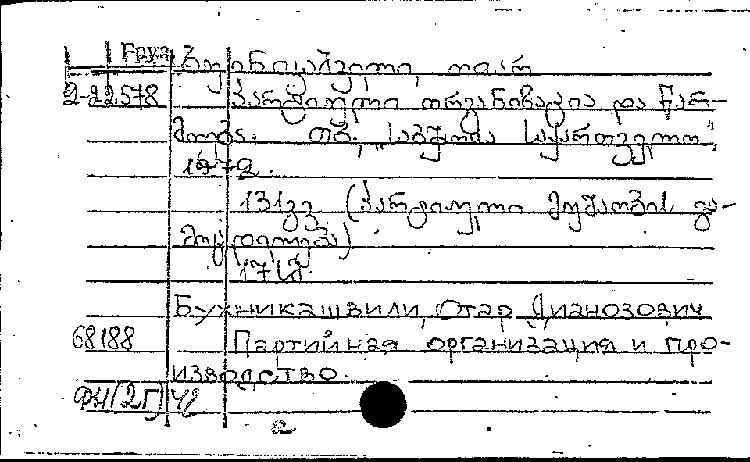 Груз
ბუხნიკაშვილი, ოთარ
2-22578 პარტიული ორგანიზაცია და წარ-
მოება. თბ., "საბჭოთა საქართველო",
1972.
131გვ. (პარტიული მუშაობის გა-
მოცდილება)
17კ.
Бухникашвили, Отар Дианозович
68188 Партийная организация и про-
изводство.
ФН(2Г) 42